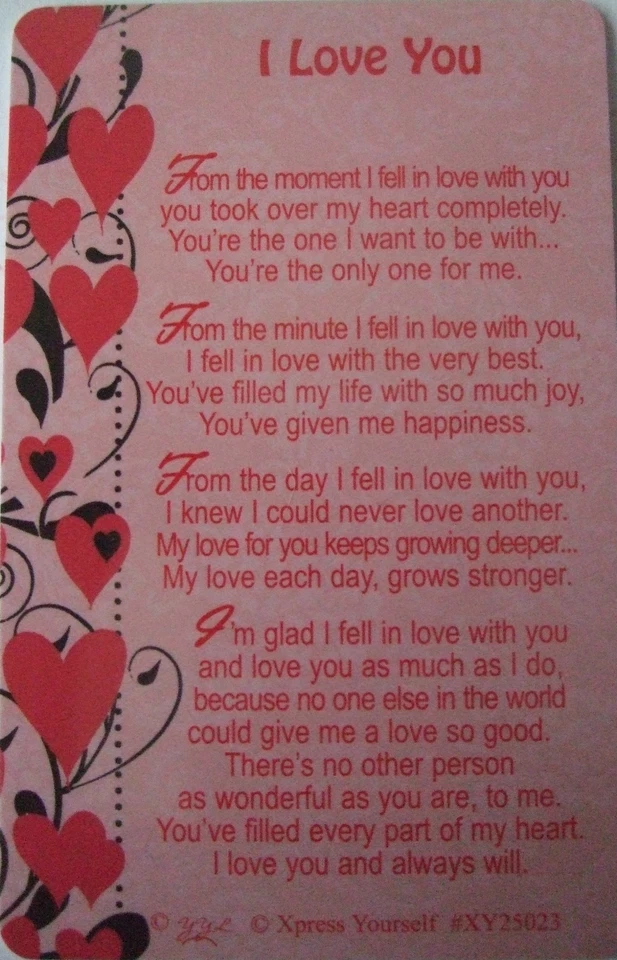 I Love You
From the moment I fell in love with you
you took over my heart completely.
You're the one I want to be with...
You're the only one for me.
From the minute I fell in love with you,
I fell in love with the very best.
You've filled my life with so much joy,
You've given me happiness.
From the day I fell in love with you,
I knew I could never love another.
My love for you keeps growing deeper...
My love each day, grows stronger.
I'm glad I fell in love with you
and love you as much as I do,
because no one else in the world
could give me a love so good.
There's no other person
as wonderful as you are, to me.
You've filled every part of my heart.
I love you and always will.
© © Xpress Yourself #XY25023